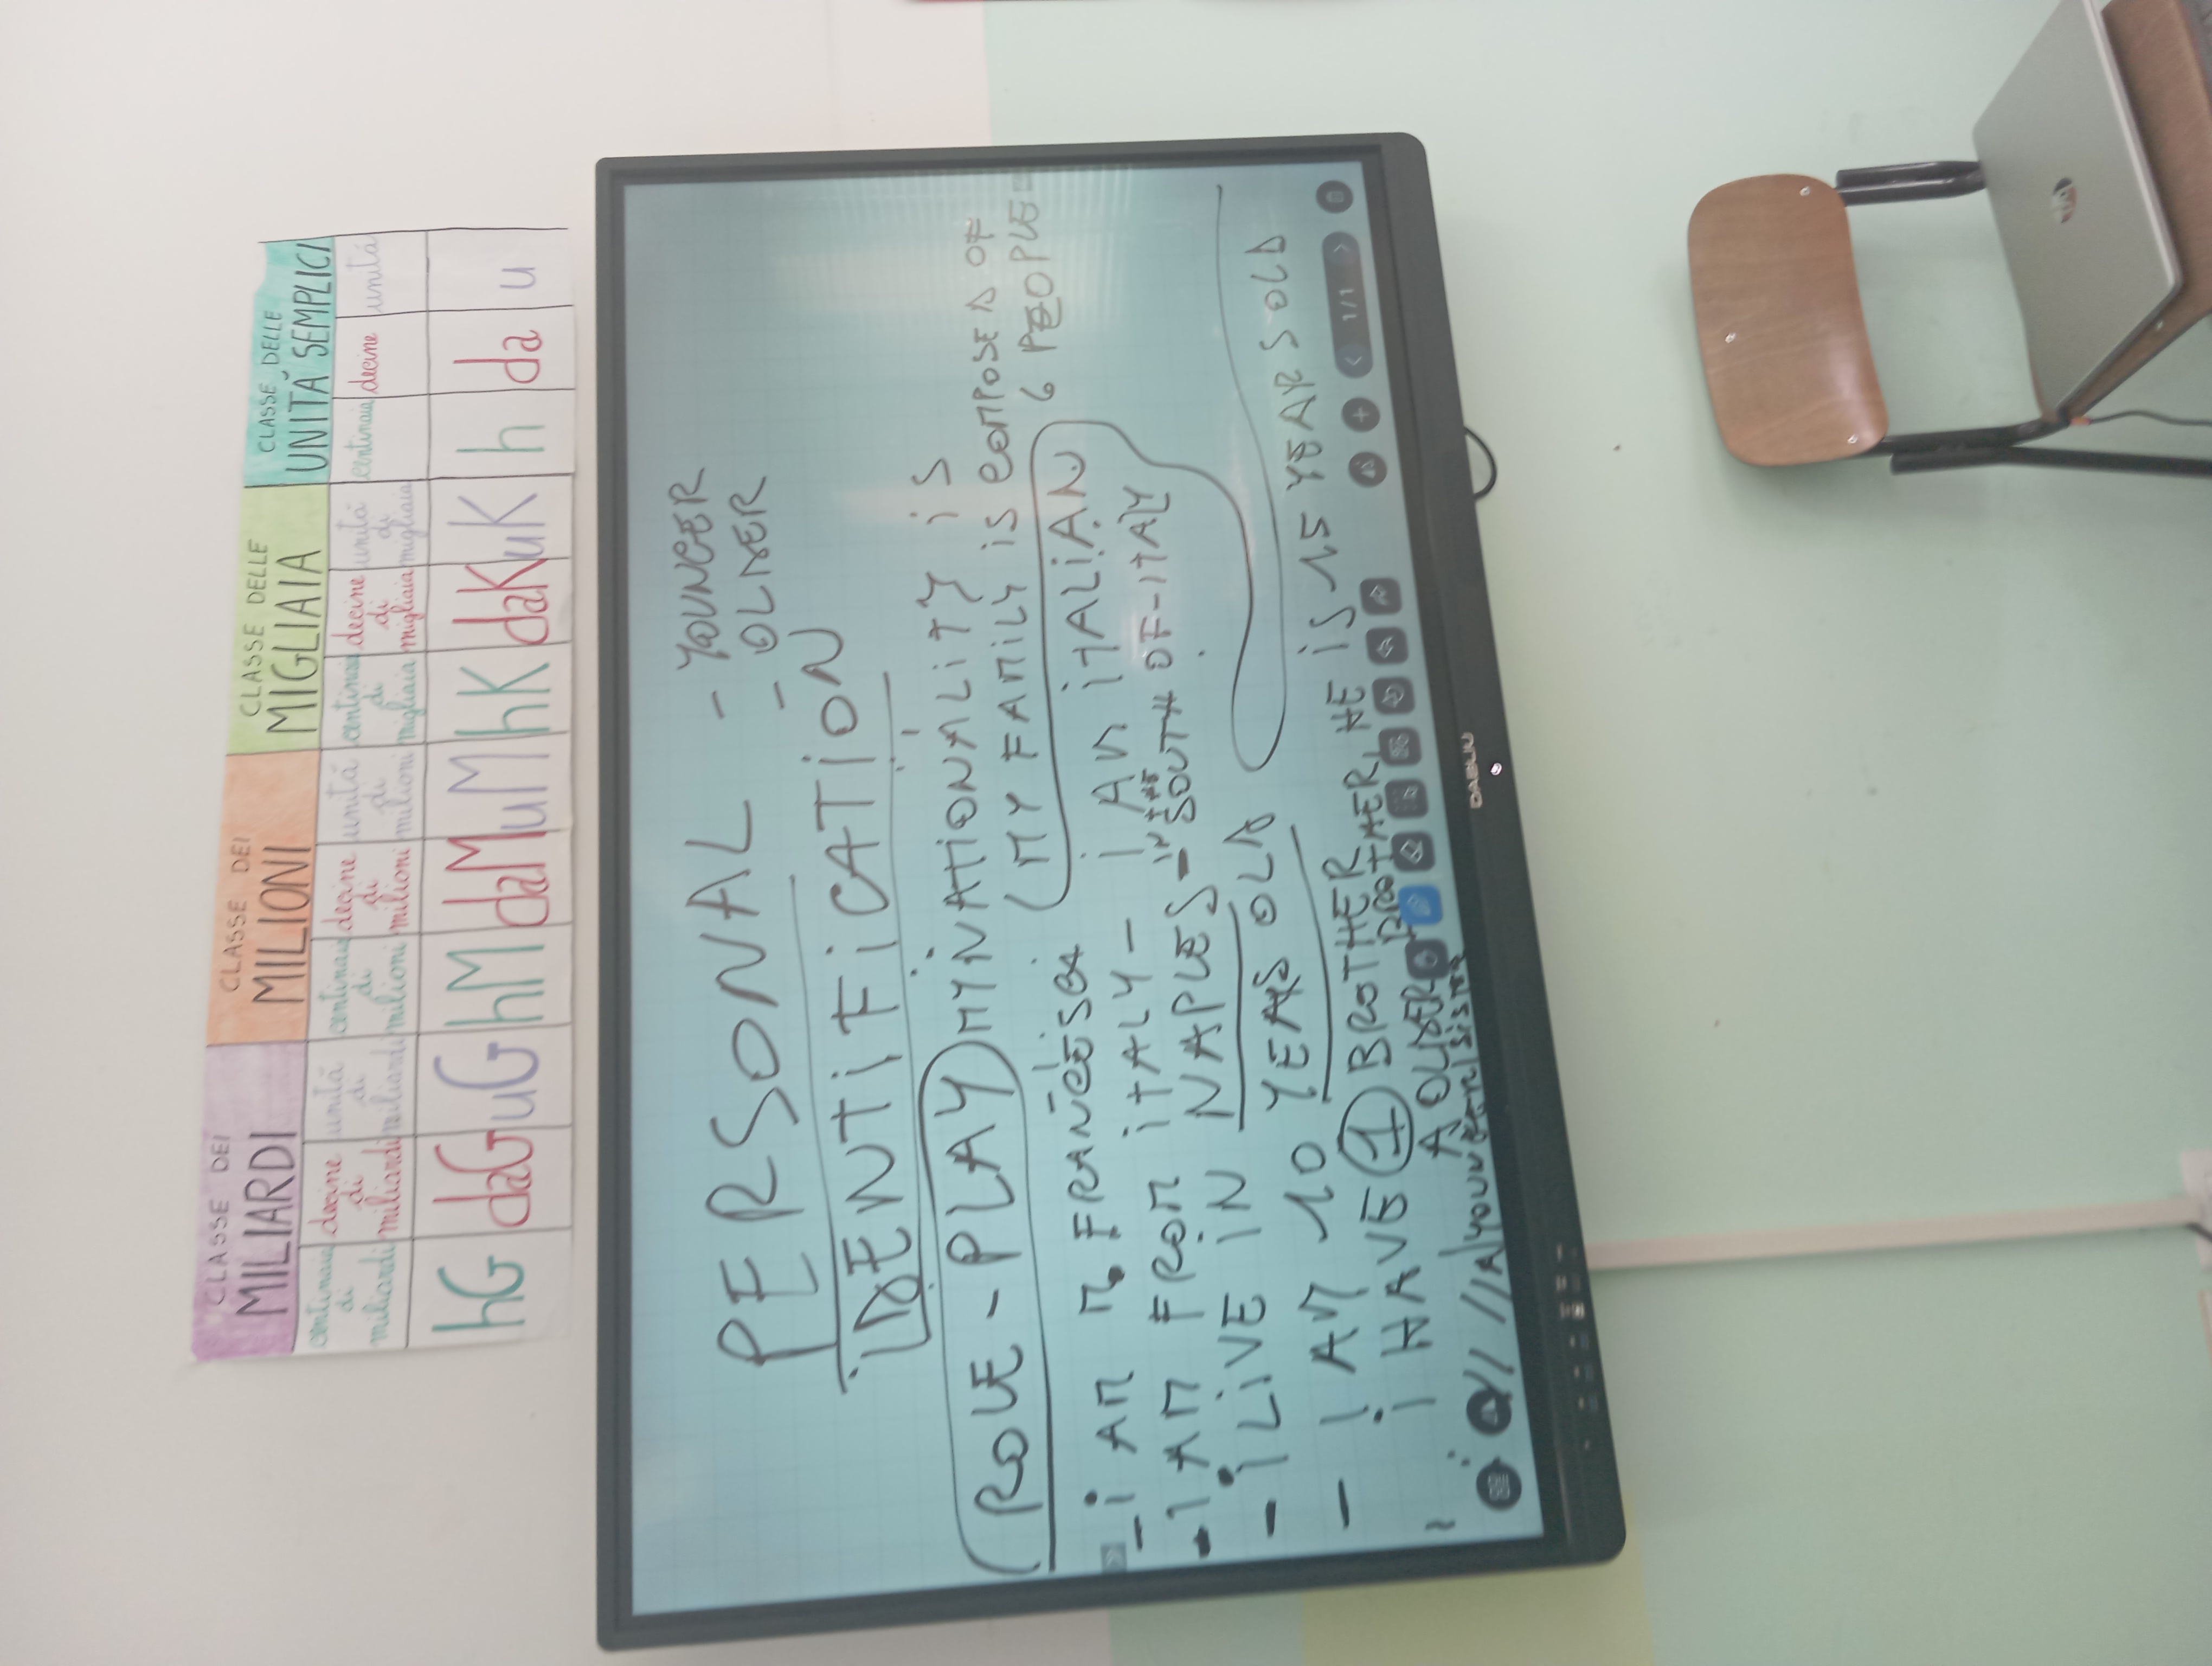 CLASSE DEI MILIARDI
CLASSE DEI MILIONI
CLASSE DELLE MIGLIAIA
CLASSE DELLE UNITÀ SEMPLICI
centinaia di miliardi decine di miliardi unitá di miliardi centinaia di milioni decine di milioni unitá di milioni centinaia di migliaia decine di migliaia unitá di migliaia centinaia decine unitá
hG daG uG hM daM uM hK daK uK h da u
PERSONAL - YOUNGER
- OLDER
IDENTIFICATION
ROLE-PLAY MY NATIONALITY IS
(MY FAMILY IS COMPOSED OF
6 PEOPLE-
- I AM M. FRANCESCA
I AM ITALIAN
- I AM FROM ITALY-
IN THE SOUTH OF-ITALY
- I LIVE IN NAPLES-
- I AM 10 YEARS OLD
I HAVE 1 BROTHER
A OLDER BROTHER, HE IS 15 YEARS OLD
// // A YOUNGER SISTER
1/1
DABLIU
hp